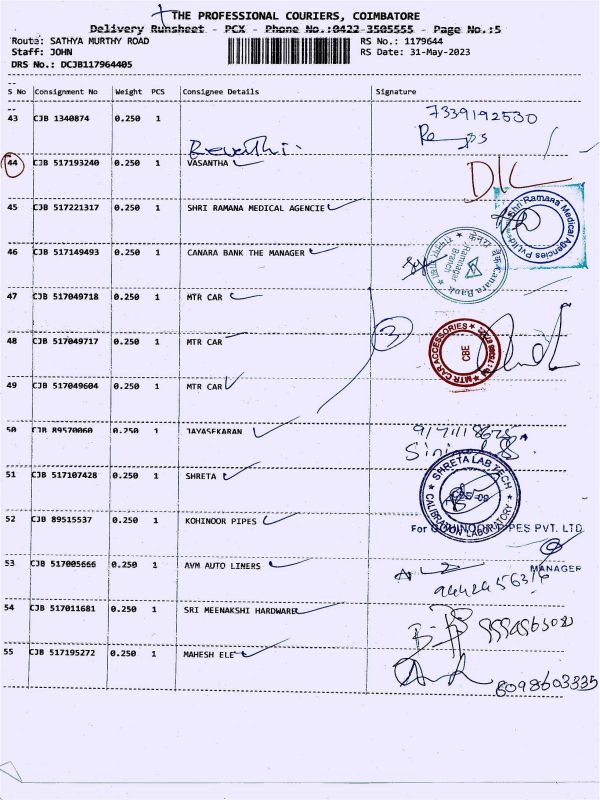 THE PROFESSIONAL COURIERS, COIMBATORE
Delivery Runsheet - PCX - Phone No.:0422-3505555 - Page No.:5
Route: SATHYA MURTHY ROAD RS No.: 1179644
Staff: JOHN RS Date: 31-May-2023
DRS No.: DCJB117964405
S No Consignment No Weight PCS Consignee Details Signature
43 CJB 1340874 0.250 1 7339192530
Revathi.
44 CJB 517193240 0.250 1 VASANTHA
DIL
45 CJB 517221317 0.250 1 SHRI RAMANA MEDICAL AGENCIE
Shri Ramana Medical Agencies Pvt Ltd
46 CJB 517149493 0.250 1 CANARA BANK THE MANAGER
Canara Bank
Ramnagar
Branch
47 CJB 517049718 0.250 1 MTR CAR
48 CJB 517049717 0.250 1 MTR CAR 3
MTR CAR ACCESSORIES
CBE
49 CJB 517049604 0.250 1 MTR CAR
50 CJB 89570060 0.250 1 JAYASEKARAN
51 CJB 517107428 0.250 1 SHRETA
SHRETA LAB TECH
CALIBRATION LABORATORY
52 CJB 89515537 0.250 1 KOHINOOR PIPES
For KOHINOOR PIPES PVT. LTD
MANAGER
53 CJB 517005666 0.250 1 AVM AUTO LINERS
54 CJB 517011681 0.250 1 SRI MEENAKSHI HARDWARE
55 CJB 517195272 0.250 1 MAHESH ELE
8098603335